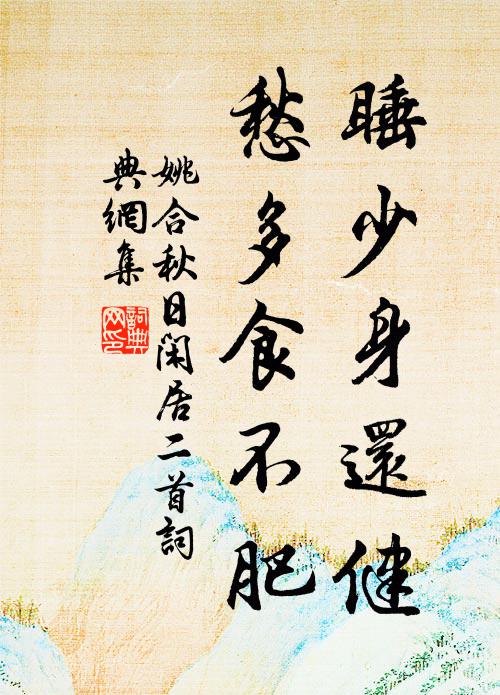 睡少身還健
愁多食不肥
姚合秋日閑居二首詞
典網集
詞典
网印